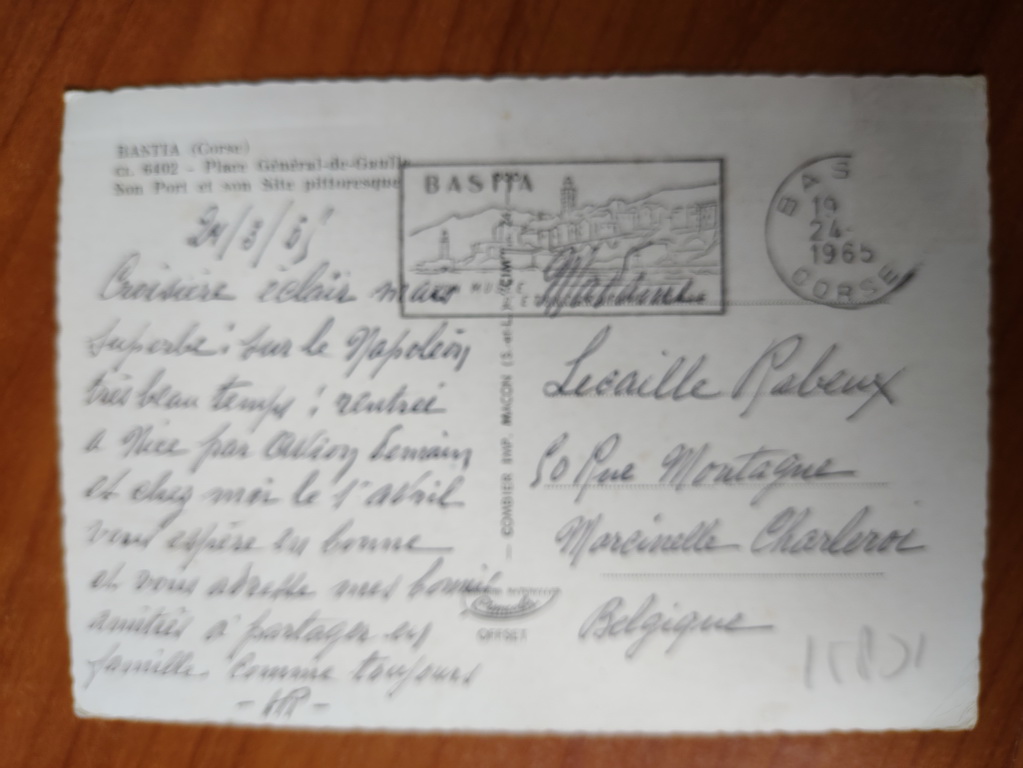 BASTIA (Corse)
CI. 6402 - Place Général-de-Gaulle
Son Port et son Site pittoresque
24/3/65
Croisière éclair mais
superbe : sur le Napoléon
très beau temps ; rentrée
a Nice par Avion demain
et chez moi le 1er avril
vous espère en bonne
et vous adresse mes bonnes
amitiés à partager en
famille. Comme toujours
BASTIA
BAS
19
24-
1965
CORSE
COMBIER IMP. MACON (S.-et-L.) "CIM"
OFFSET
Madame
Lecaille Rabeux
50 Rue Montagne
Marcinelle Charleroi
Belgique